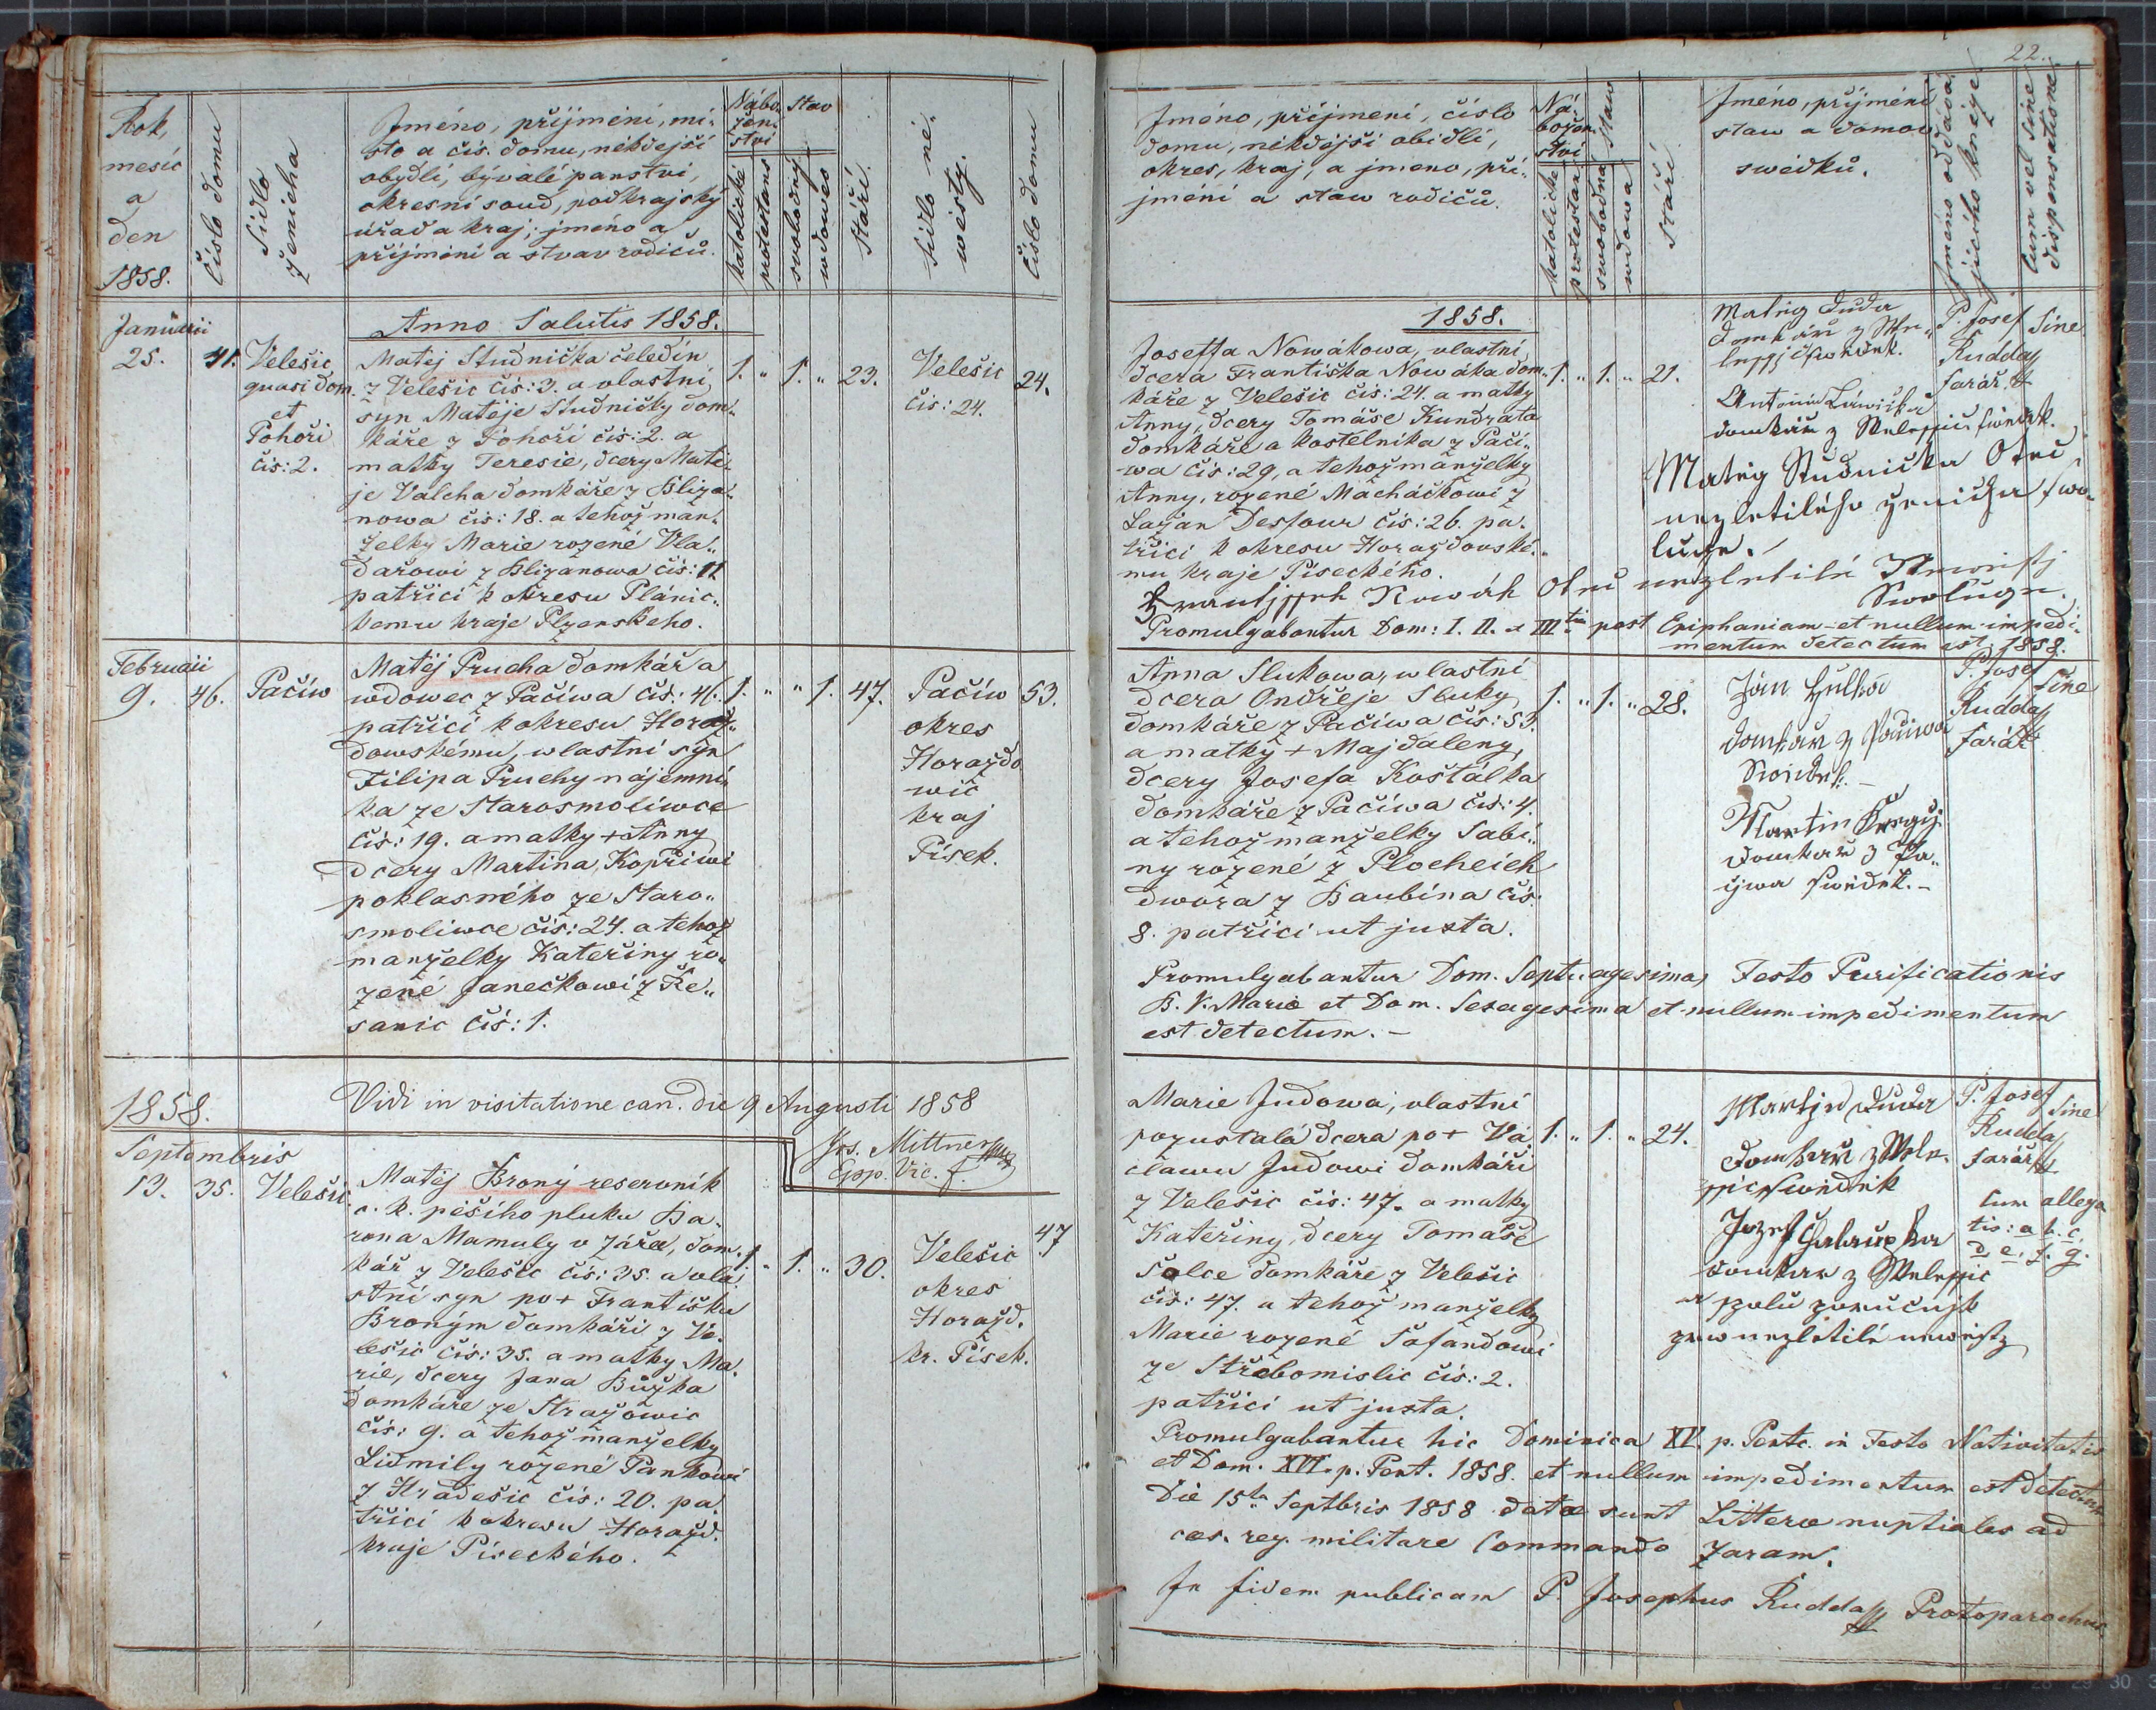 22.
Rok,
mesíc
a
den
1858.
číslo domu
Sídlo
ženicha
Jméno, příjmení, mí-
sto a čís. domu, někdejší
obydlí, bývalé panství,
okresní soud, podkrajský
úřad a kraj; jméno a
příjmění a stvav rodičů.
Nábo-
žen-
stvi
katolické
protestans
Stav
swobodný
wdowec
Stáří.
Sídlo ně-
wěsty.
Číslo domu
Januarii
25.
41.
Velešic
quasi dom.
et
Pohoři
čis: 2.
Anno Salutis 1858.
Matěj Studnička čeledín
z Velešic čís: 3. a vlastní
syn Matěje Studničky dom-
káře z Pohoří čís: 2. a
matky Teresie, dcery Matě-
je Valcha domkáře z Bliza-
nowa čís: 18. a tehož man-
želky Marie rozené Vla-
dařowi z Blizanowa čís: 11
patřící k okresu Plánic-
kemu kraje Plzenského.
1. " 1. " 23.
Velešic
čis: 24.
24.
Februaii
9.
46.
Pačíw
Matěj Prucha domkář a
wdowec z Pačíwa čís: 46.
patřící k okresu Horaž-
dowskému, wlastní syn
Filipa Pruchy nájemní-
ka ze Starosmoliwce
čís: 19. a matky + Anny
dcery Martina Kopřiwi
poklasného ze Staro-
smoliwce čís: 24. a tehož
manželky Kateřiny ro-
zené Janečkowi z Ře-
sanic čís: 1.
1. " " 1. 47.
Pačíw
okres
Horaždo
wic
kraj
Písek.
53.
1858.
Vidi in visitatione can. die 9 Augusti 1858
Jos. Mittner
Epp. Vic. f.
Septembris
13.
35.
Velešic
Matěj Brony reservník
c. k. pěšího pluku Ba-
rona Mamuly v Záře, dom-
kář z Velešic čís: 35. a vla-
stní syn po + Františku
Broným domkáři z Ve-
lešic čís: 35. a matky Ma-
rie, dcery Jana Bůžka
domkáře ze Stražowic
čís: 9. a tehož manželky
Lidmily rozené Pankowi
z Hradešic čís: 20. pa-
třící k okresu Horažd.
kraje Píseckého.
1. " 1. " 30.
Velešic
okres
Horažd.
kr. Písek.
47
Jméno, příjmení, číslo
domu, někdejší obidlí,
okres, kraj, a jmeno, pří-
jmění a staw rodičů.
Ná-
božen-
stvi
katolické
protestan
Staw
swobodná
wdowa
Stáří
Jméno, příjmění
staw a domow
swědků.
Jméno oddáva-
jicího kněze.
Cum vel sine
dispensatione.
1858.
Joseffa Nowákowa, vlastní
dcera Františka Nowáka dom-
káře z Velešic čís: 24. a matky
Anny, dcery Tomáše Kundrata
domkáře a kostelníka z Pačí-
wa čís: 29, a tehož manželky
Anny, rozené Macháčkowi z
Lažan Desfour čís: 26. pa-
třici k okresu Horažďouské-
mu kraje Píseckého.
1. " 1. " 21.
Matěg Duda
Domkář z We-
domkář z Welessic swědek.
Matěg Studnička Otec
nezletilého ženicha swo-
luge.
Nowák Otec nezletilé Newěsti
Swoluge.
P. Josef
Rudda
farář
Sine
Promulgabantur Dom: I. II. et IIItia post Epiphaniam et nullum impedi-
mentum detectum est. 1858.
Anna Slukowa, wlastní
dcera Ondřeje Sluky
domkáře z Pačíwa čís: 53.
a matky + Majdaleny,
dcery Josefa Košťálka
domkáře z Pačíwa čís: 4.
a tehož manželky Sabi-
ny rozené z Plocheich
dwora z Baubína čís:
8. patřici ut juxta.
1. " 1. " 28.
Jan
domkář z Pačiwa
Swědek.
Martin
domkář z Pa-
čjwa swědek.
P. Josef
Rudda
farář
Sine
Promulgabantur Dom. Septuagesima, Festo Purificationis
B. V. Mariæ et Dom. Sexagesima et nullum impedimentum
est detectum.
Marie Judowa, vlastní
pozustalá dcera po + Vá-
clawu Judowi domkáři
z Velešic čís: 47. a matky
Kateřiny, dcery Tomáše
Šolce domkáře z Velešic
čís: 47. a tehož manželky
Marie rozené Šafandowi
ze Střebomislic čís: 2.
patřici ut juxta.
1. " 1. " 24.
Duda
domkář z Wele-
ssic Swědek
Jozef
domkář z Welessic
a spolu poručnjk
nezletilé newěsty
P. Josef
Rudda
farář
Sine
Cum allega-
tis: a. b. c.
d. e. f. g.
Promulgabantur hic Dominica XV. p. Pente. in Festo Nativitatis
et Dom. XVI. p. Pent. 1858. et nullum impedimentum est detectum
Die 15ta Septbris 1858 datæ sunt Litteræ nuptiales ad
cæs. reg. militare Commando Zaram.
In fidem publicam P. Josephus Rudda Protoparochus.